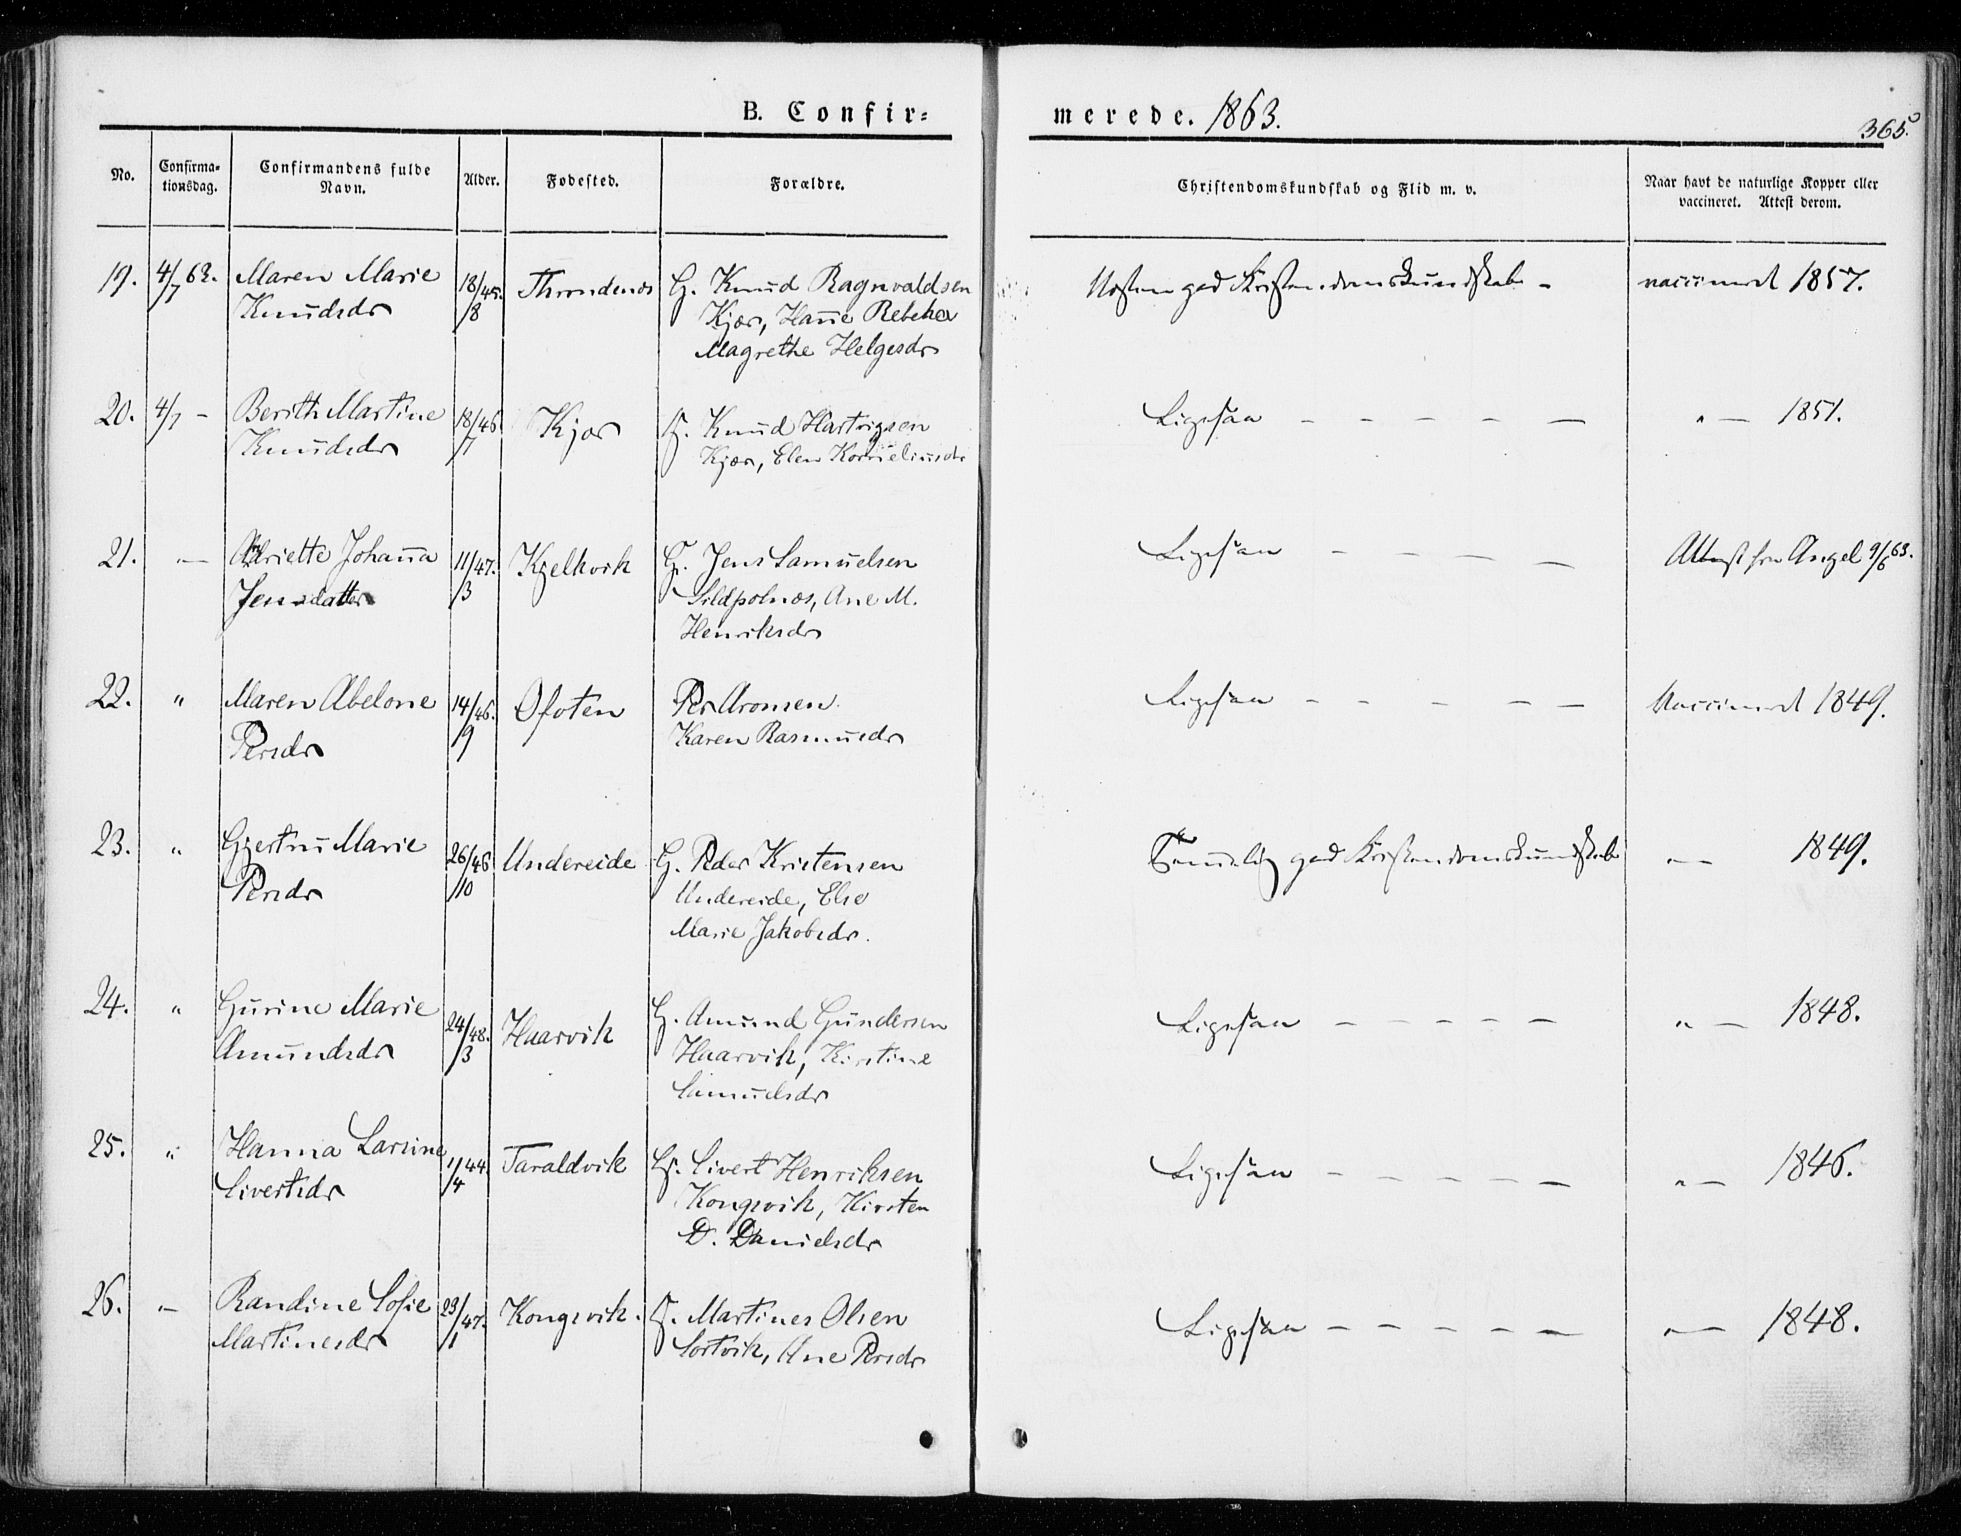 B. Confir=
merede. 1863.
365.
No.
Confirma-
tionsdag.
Confirmandens fulde
Navn.
Alder.
Fødested.
Forældre.
Christendomskundskab og Flid m. v.
Naar havt de naturlige Kopper eller
vaccineret. Attest derom.
19. 4/7 63. Maren Marie 18/8 45. Throndenæs G. Knud Ragnvaldsen Næsten god Kristendomskundskab - vaccineret 1857.
Knudsdr Kjær, Hanne Rebekka
Magrethe Helgesdr
20. 4/7 - Berith Martine 18/7 46. Kjær G. Knud Hartvigsen Ligesaa - - - - - " - 1851.
Knudsdr Kjær, Elen Korneliusdr
21. - Johanna 11/3 47. Kjelkvik G. Jens Samuelsen Ligesaa - - - - Attest fra Angel 9/6 63.
Jensdatter Sildpolnæs, Ane M.
Henriksdr
22. " Maren Abelone 14/9 46. Ofoten Per Aronsen Ligesaa - - - - - Vaccineret 1849.
Persdr Karen Rasmusdr
23. " Gjertru Marie 26/10 46 Undereide G. Peder Kristensen Temmelig god Kristendomskundskab " - 1849.
Persdr Undereide, Else
Marie Jakobsdr.
24. " Gurine Marie 24/3 48. Haarvik G. Amund Gundersen Ligesaa - - - - - " - 1848.
Amundsdr Haarvik, Kirstine
Samuelsdr
25. " Hanna Larsine 1/4 44. Taraldvik G. Sivert Henriksen Ligesaa - - - - - " - 1846.
Sivertsdr Kongsvik, Kirsten
D. Danielsdr
26. " - Randine Sofie 23/1 47. Kongsvik. G. Martines Olsen Ligesaa - - - - - " - 1848.
Martinesdr Sortvik, Ane Persdr